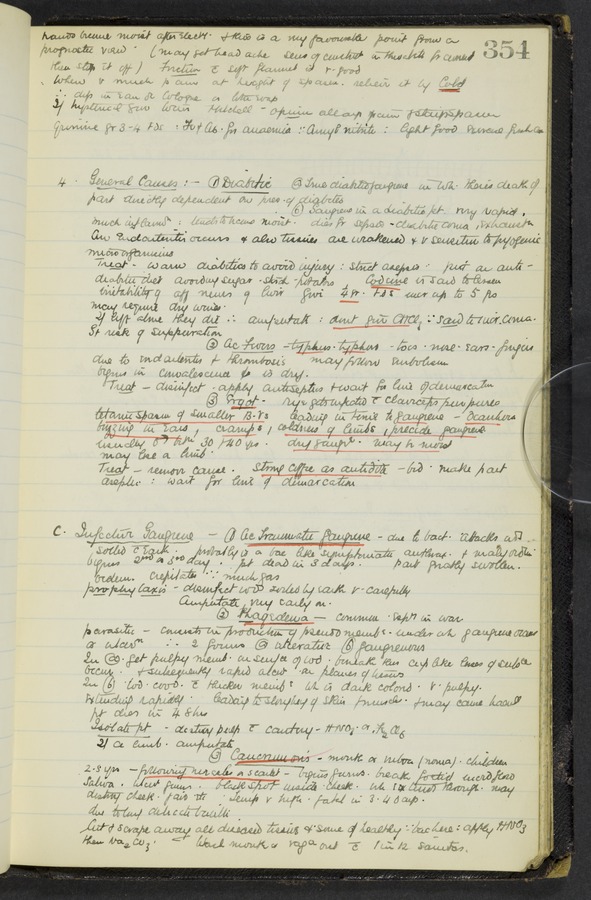 354
hands become moist after sleep. this is a very favourable point from a
prognostic view. (may get head ache
then stop it off) friction c̄ soft flannel is v good
when v much pain at height of spasm. relieve it by Cold
∴ dip in Eau de Cologne or
Mitchell - opium
Quinine gr 3-4 tds : for anaemia : Amyl nitrite : light food
4. General Causes :- ① Diabetic ⓐ true diabetic gangrene in wh. there is death of
part directly dependent on pres. of diabetes
ⓑ Gangrene in a diabetic pt. very rapid.
much inflamn : tends to become moist. dies fr sepsis - diabetic coma, exhaustn
An Endarteritis occurs & also tissues are weakened & v sensitive to pyogenic
microorganisms
Treat - warn diabetics to avoid injury : strict asepsis. put on anti-
diabetic diet avoiding sugar - starch - potatoes Codeine is said to lessen
irritability of aff nerves of liver Give ¼ gr. tds incr up to 5 grs
may require dry
If left alone they die ∴ amputate : dont give CHCl3 ∵ said to incr. coma.
& risk of Suppuration
② Ac Fevers - typhus. typhoid - toes - nose - ears - fingers
due to endarteritis & thrombosis may follow embolism
begins in convalescence & is dry.
Treat - disinfect - apply antiseptics & wait for line of demarcation
③ Ergot - rye c̄ claviceps purpurea
tetanic spasm of smaller B.Vs leading in time to gangrene - Deafness
buzzing in Ears, cramps, coldness of limbs, precede gangrene
usually 30 & 40 yrs. dry gangr. may be moist
may lose a limb.
Treat - remove cause. Strong coffee as antidote - make part
aseptic : wait for line of demarcation
C. Infective Gangrene - ① Ac Traumatic Gangrene - due to bact. attacks wd
soiled c̄ Earth. probably is a bac like symptomatic anthrax. & malig oedem
begins 2nd or 3rd day. pt dead in 3 days. Part greatly swollen.
oedem. crepitates ∵ much gas
prophylaxis - disinfect wd soiled by earth v. carefully
Amputate very early on.
② Phagedena - common. Septic in war
parasitic - consists in production of pseudo memb. under wh gangrene occurs
or ulcern ∴ 2 forms ⓐ ulcerative ⓑ gangrenous
In ⓐ. get pulpy memb. on surface of wd. beneath this cup like loss of subst
occurs. & subsequently rapid ulcer. on planes of tissues
In ⓑ wd. covd. c̄ thicker memb. wh is dark colord. & pulpy.
extending rapidly. leading to sloughing of skin & muscle. & may cause haem
pt dies in 48 hrs
Isolate pt - destroy deep c̄ cautery - HNO3 or
If a limb. amputate
③ Cancrum oris - mouth or vulva (noma). children
2-5 yrs - following measles or scarlet - begins gums. breath foetid
saliva. ulcer gums. black spot inside cheek. wh extends through. may
destroy cheek. Temp v high. fatal in 3. 4 days.
due to long delicate bacilli.
Cut & scrape away all diseased tissues & some of healthy : bac here : apply HNO3
then Na2CO3. Wash mouth or vagina out c̄ 1 in 12 Sanitas.